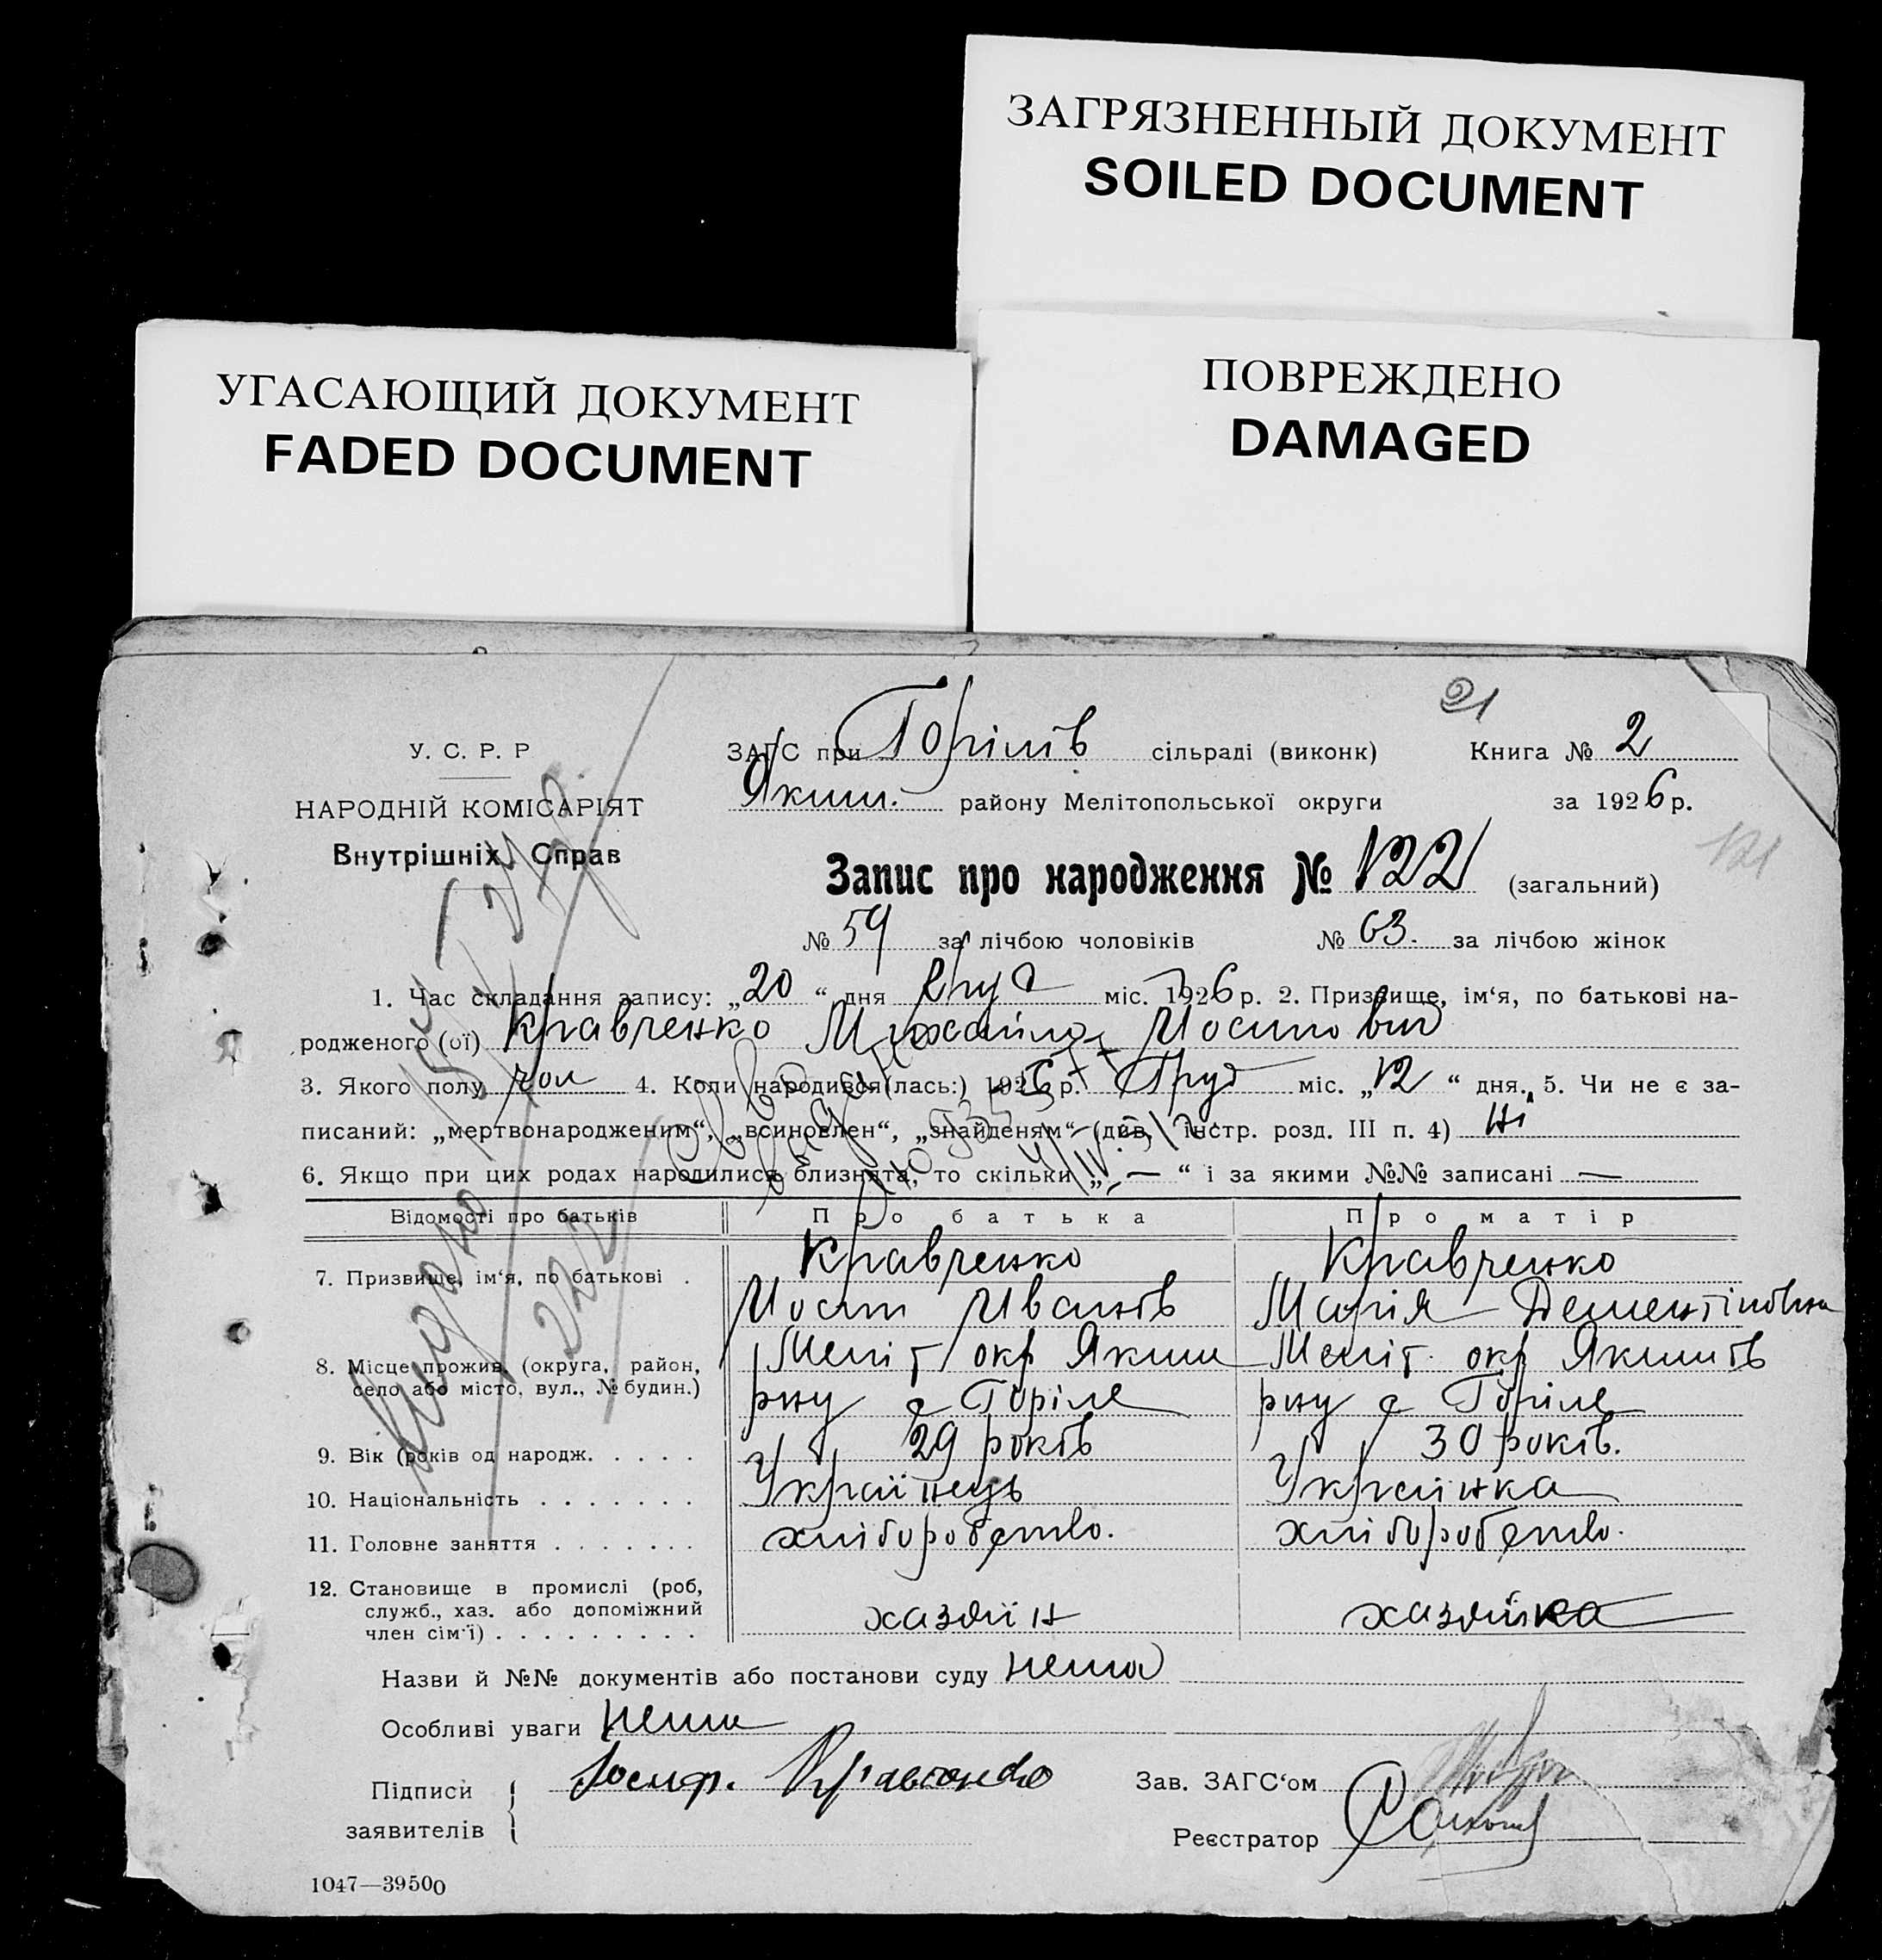 ЗАГРЯЗНЕННЫЙ ДОКУМЕНТ
SOILED DOCUMENT
УГАСАЮЩИЙ ДОКУМЕНТ
FADED DOCUMENT
ПОВРЕЖДЕНО
DAMAGED
21
У. С. Р. Р
НАРОДНІЙ КОМІСАРІЯТ
Внутрішніх Справ
ЗАГС при Горілів сільраді (виконк) Книга № 2
Яким. району Мелітопольської округи за 1926 р.
121
Запис про народження № 122 (загальний)
№ 59 за лічбою чоловіків № 63. за лічбою жінок
1. Час складання запису: „20“ дня Груд міс. 1926 р. 2. Призвище, ім‘я, по батькові на-
родженого (ої) Кравченко Михайло Йосипович
3. Якого полу чол 4. Коли народився(лась:) 1926 р. Груд міс. „12“ дня. 5. Чи не є за-
писаний: „мертвонародженим“, „всиновлен“, „знайденям“ (див. інстр. розд. III п. 4) Ні
6. Якщо при цих родах народилися близнята, то скільки „—“ і за якими №№ записані —
Відомості про батьків Про батька Про матір
7. Призвище, ім‘я, по батькові . Кравченко Кравченко
Йосип Иванів Марія Дементіивна
8. Місце прожив. (округа, район, Меліт окр Яким Меліт. окр Якимів
село або місто, вул., № будин.) рну с Горіле рну с Горіле
9. Вік (років од народж. . . . . 29 років 30 років.
10. Національність . . . . . . . Українець Українка
11. Головне заняття . . . . . . . хліборобство. хліборобство.
12. Становище в промислі (роб,
служб., хаз. або допоміжний хазяїн хазяйка
член сім‘ї) . . . . . . . . .
Назви й №№ документів або постанови суду нема
Особливі уваги нема
Підписи Иосиф. Кравченко Зав. ЗАГС‘ом
заявителів Реєстратор
1047—39500